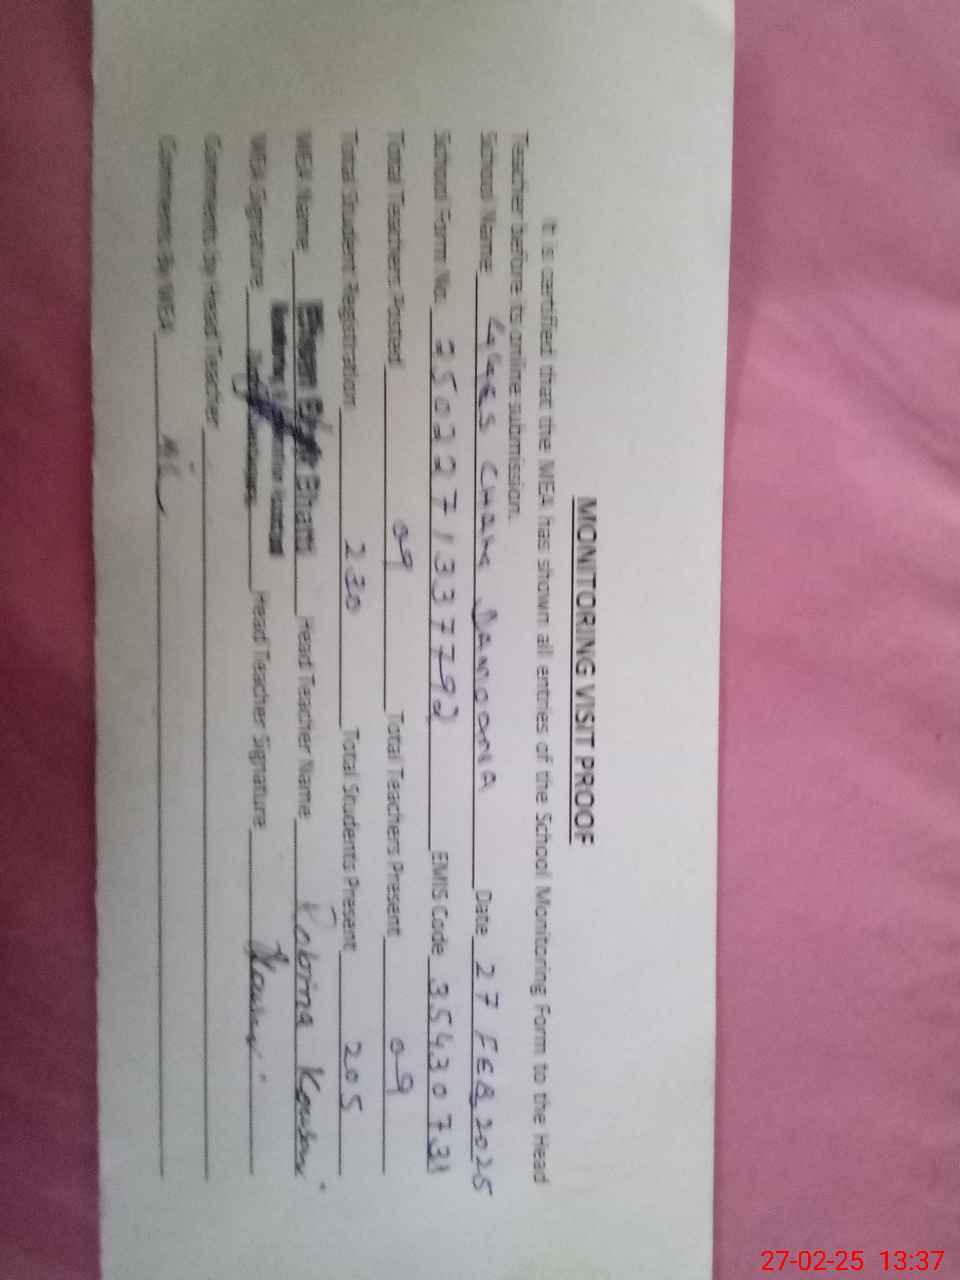 MONITORING VISIT PROOF
It is certified that the MEA has shown all entries of the School Monitoring Form to the Head
Teacher before its online submission.
School Name GGES CHAK Date 27 FEB, 2025
School Form No. 3503271337792 EMIS Code 35430731
Total Teachers Posted 09 Total Teachers Present 09
Total Student Registration 230 Total Students Present 205
MEA Name Bhatti Head Teacher Name Robina Kousar
MEA Signature Head Teacher Signature Kousar
Comments by Head Teacher
Comments By MEA Nil
27-02-25 13:37